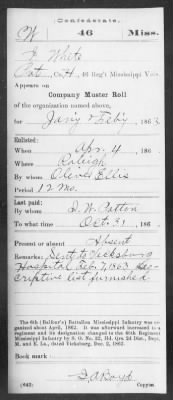 Confederate.
W 46 Miss.
J White
Pvt, Co. H, 46 Reg't Mississippi Vols.
Appears on
Company Muster Roll
of the organization named above,
for Jan'y & Feb'y, 1863
Enlisted:
When Apr. 4, 186
Where Raleigh
By whom Oliver Ellis
Period 12 Mo.
Last paid:
By whom J. W. Patton
To what time Oct. 31, 186
Present or absent Absent
Remarks: Sent to Vicksburg
Hospital Feb. 7, 1863 Des-
criptive list furnished
The 6th (Balfour's) Battalion Mississippi Infantry was
organized about April, 1862. It was afterward increased to
a regiment and its designation changed to the 46th Regiment
Mississippi Infantry by S. O. No. 22, Hd. Qrs. 2d Dist., Dept.
M. and E. La., dated Vicksburg, Dec. 2, 1862.
Book mark:
(642) Boyd
Copyist.